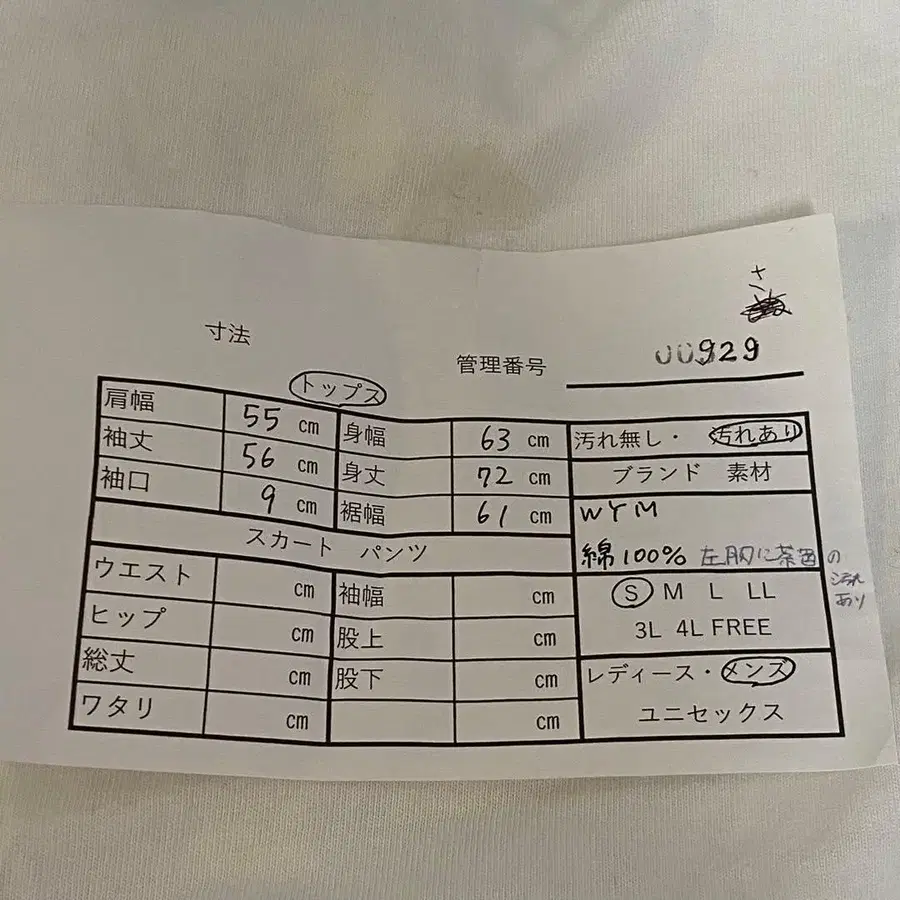 寸法
管理番号 00929
トップス
肩幅 55 cm 身幅 63 cm 汚れ無し・ 汚れあり
袖丈 56 cm 身丈 72 cm ブランド 素材
袖口 9 cm 裾幅 61 cm WYM
スカート パンツ 綿100% 左胸に茶色の汚れあり
ウエスト cm 袖幅 cm S M L LL
ヒップ cm 股上 cm 3L 4L FREE
総丈 cm 股下 cm レディース・メンズ
ワタリ cm cm ユニセックス